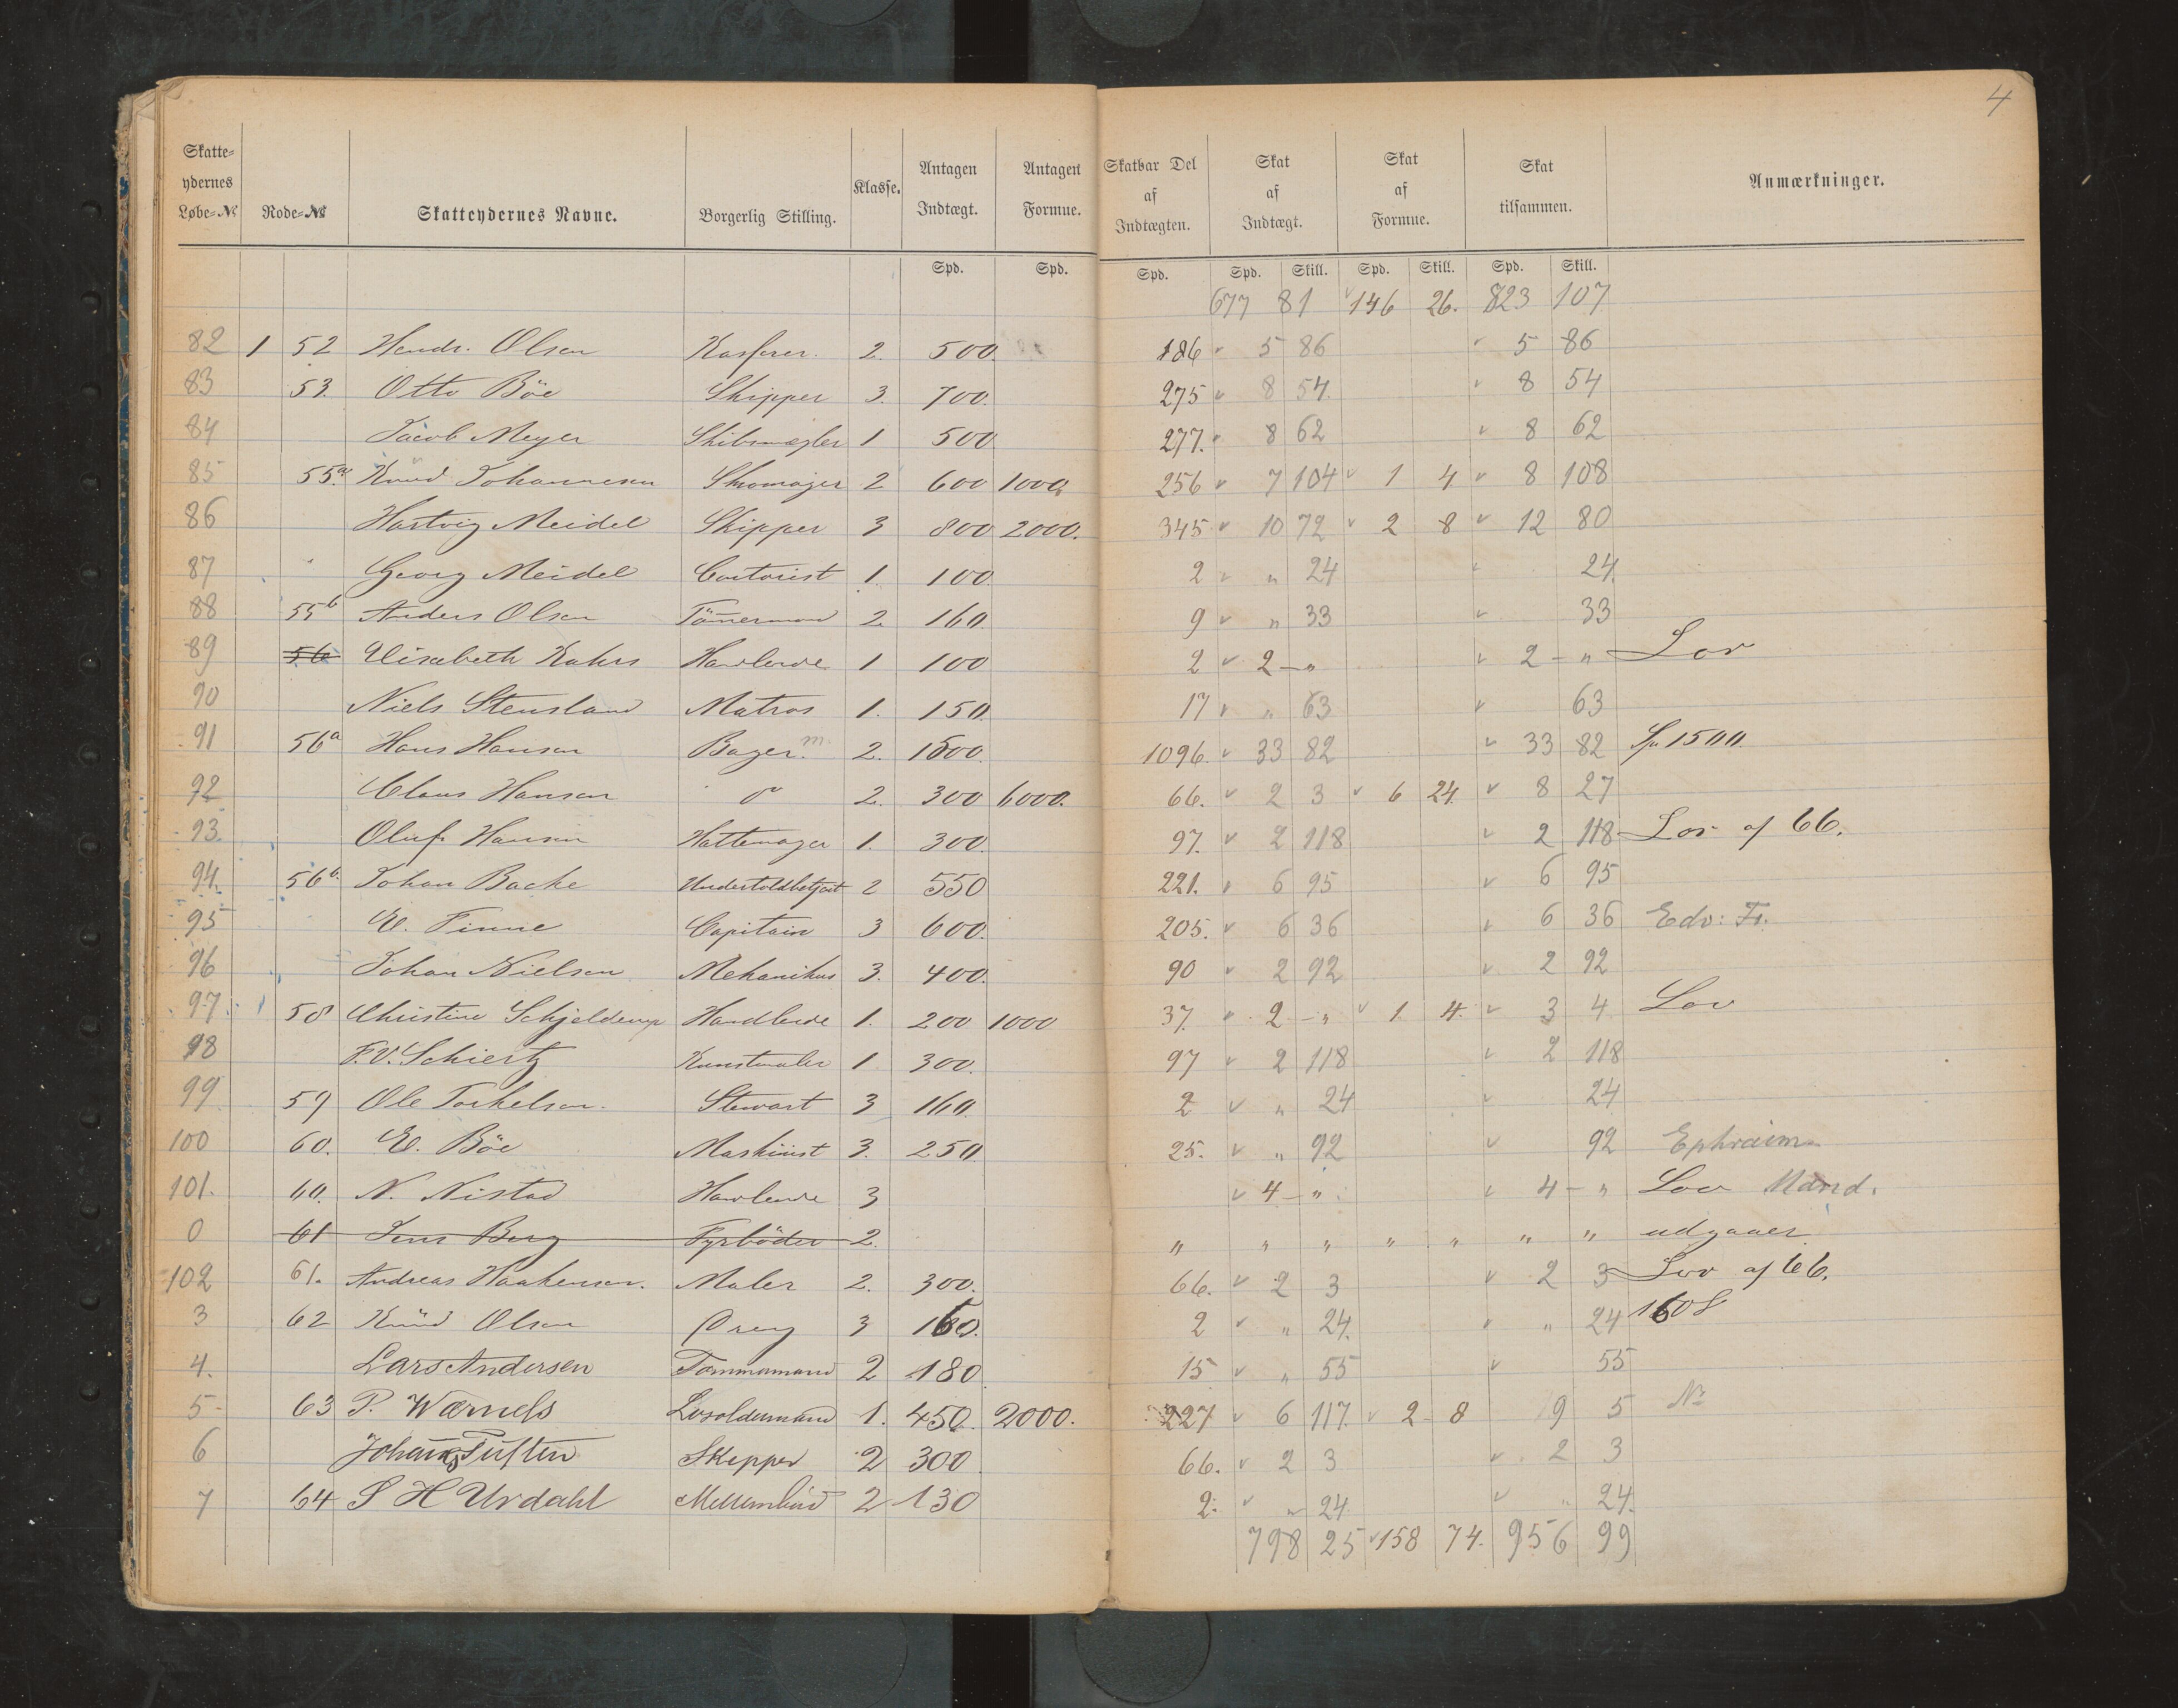 4
Skatte- ydernes Løbe-№ Rode-№ Skatteydernes Navne. Borgerlig Stilling. Klasse. Antagen Indtægt. Antagen Formue. Skatbar Del af Indtægten. Skat af Indtægt. Skat af Formue. Skat tilsammen. Anmærkninger.
Spd. Spd. Spd. Spd. Skill. Spd. Skill. Spd. Skill.
677 81 146 26. 823 107
82 1 52 Hendr. Olsen 2. 500. 186 5 86 5 86
83 53. Otto Böe Skipper 3. 700. 275 8 54 8 54
84 Jacob Meyer Skibsmægler 1 500 277. 8 62 8 62
85 55a Knud Johannesen Skomager 2 600 1000 256 7 104 1 4 8 108
86 Hartvig Meidel Skipper 3 800 2000. 345 10 72 2 8 12 80
87 " Georg Meidel Contorist 1. 100 2 " 24 24
88 55b Anders Olsen Tömermand 2. 160. 9 " 33 33
89 56 Elisabeth Kahrs Handlende 1 100 2 2 - " 2 - " Lov
90 Niels Stensland Matros 1. 150. 17 " 63 63
91 56a Hans Hansen Bager m. 2. 1500. 1096. 33 82 33 82 Sp 1500.
92 Claus Hansen do 2. 300 6000. 66. 2 3 6 24 8 27
93. Oluf Hansen Hattemager 1. 300. 97. 2 118 2 118 Lov af 66.
94. 56b. Johan Backe Undertoldbetjent 2 550 221. 6 95 6 95
95 E. Finne Capitain 3 600. 205. 6 36 6 36 Edv: Fr.
96 Johan Nielsen Mekanikus 3. 400. 90 2 92 2 92
97. 58 Christine Schjelderup Handlende 1. 200 1000 37 2 - " 1 4 3 4 Lov
98 F.V. Schiertz Kunstmaler 1 300. 97 2 118 2 118
99 59 Ole Torkelsen. Stewart 3 160. 2 " 24 24
100 60. E. Böe Maskinist 3. 250 25. " 92 92 Ephraim
101. 60. N. Nistad Handlende 3 4 - " 4 - " Lov Mand.
0 61 Jens Berg Fyrböder 2. " " " " " " " udgaaer
102 61. Andreas Haakensen. Maler 2. 300. 66. 2 3 2 3 Lov af 66.
3 62 Knud Olsen 3 160. 2 " 24. " 24 160 S
4. Lars Andersen Tömmermand 2 180. 15 " 55 55
5 63 P. Wærnels 1. 450. 2000. 227 6 117. 2 8 9 5 No
6 Johans Tuften Skipper 2 300 66. 2 3 2 3
7 64 S H Urdahl 2 130 2. " 24 " 24.
798 25 158 74. 956 99